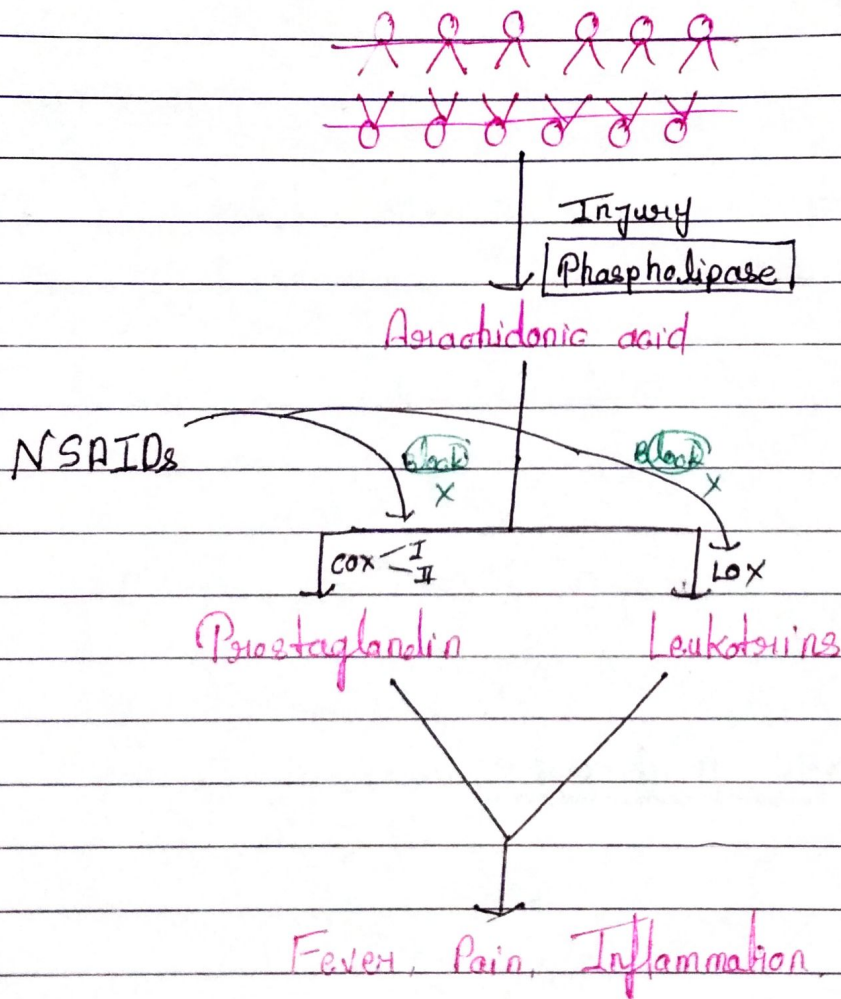 Injury
Phospholipase
Arachidonic acid
NSAIDs
Block
X
Block
X
COX I
II
LOX
Prostaglandin
Leukotrins
Fever, Pain, Inflammation